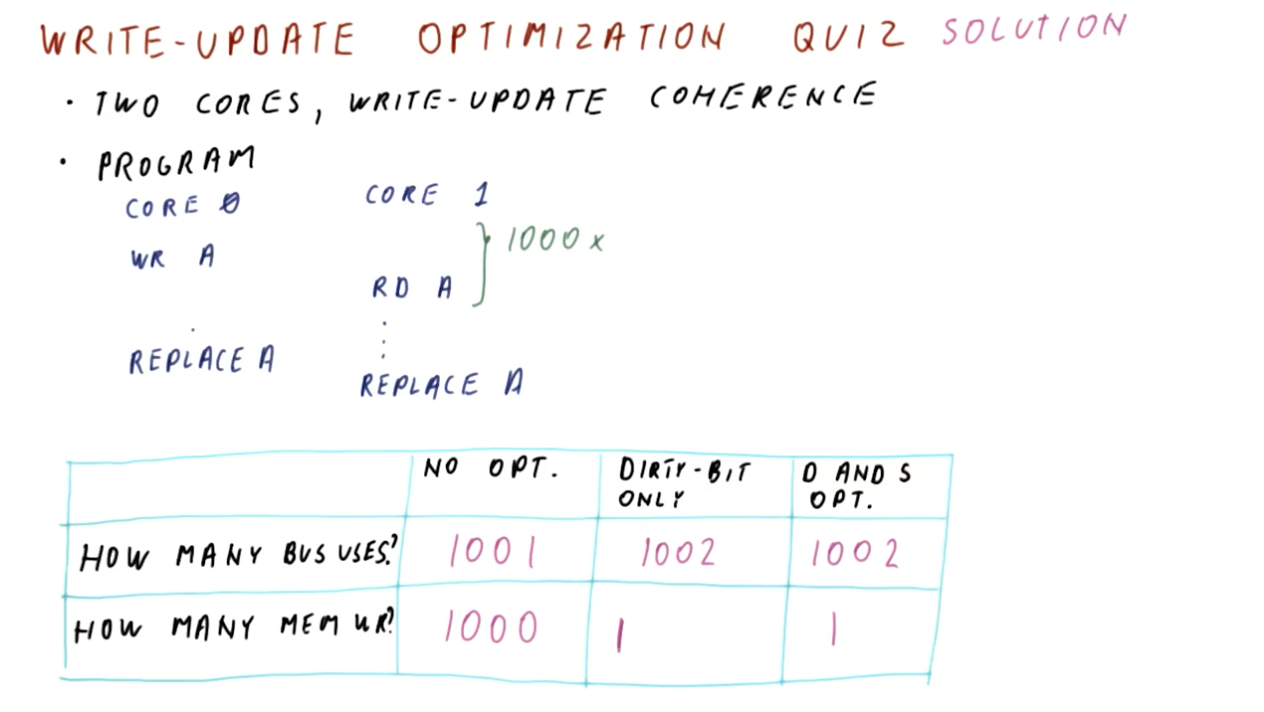 WRITE-UPDATE OPTIMIZATION QUIZ SOLUTION
· TWO CORES, WRITE-UPDATE COHERENCE
· PROGRAM
CORE 0 CORE 1
WR A } 1000 x
RD A
REPLACE A
REPLACE A
NO OPT. DIRTY-BIT ONLY D AND S OPT.
HOW MANY BUS USES? 1001 1002 1002
HOW MANY MEM WR? 1000 1 1